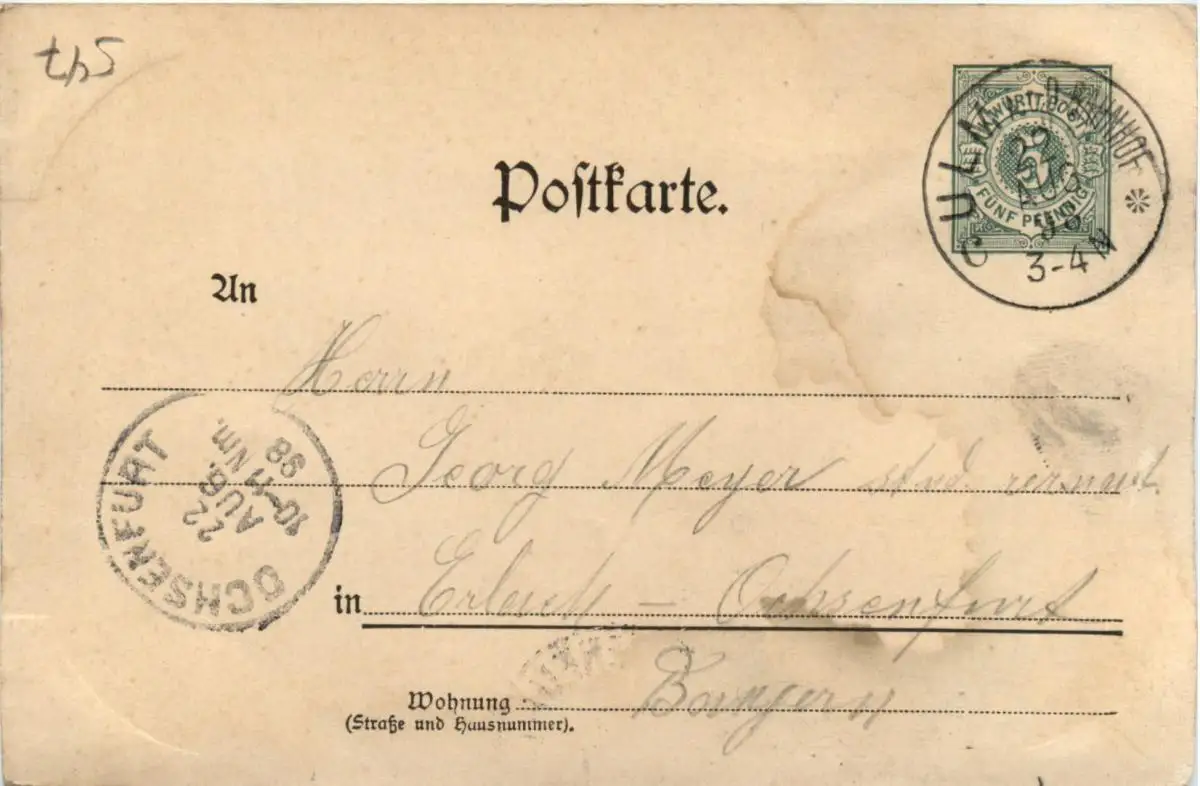 K. WÜRTT. POST
FÜNF PFENNIG
5
ULM D. BAHNHOF
22
AUG
98
3-4 N
C
Poſtkarte.
An
Herrn
Georg Meyer stud.
in Erlach - Ochsenfurt
Bayern
Wohnung
(Straße und Hausnummer).
OCHSENFURT
22
AUG.
10-11 Nm.
98